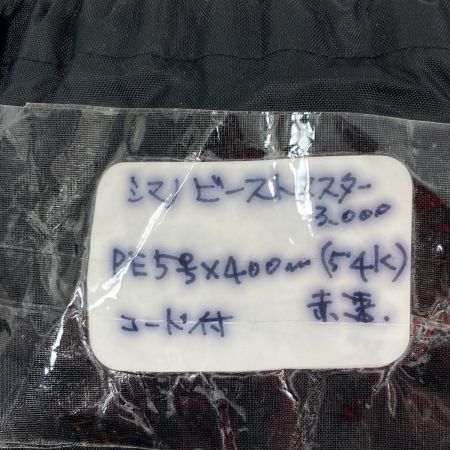 シマノビーストマスター
3.000
PE5号×400m(54K)
コード付